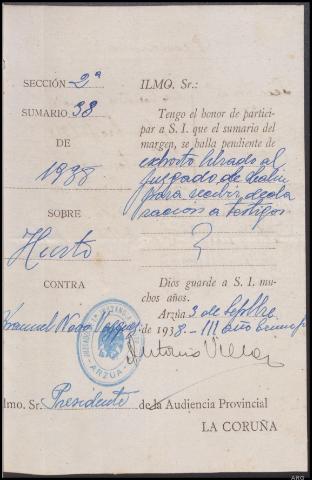 SECCIÓN 2ª
SUMARIO 38
DE
1938
SOBRE
Hurto
CONTRA
Manuel Novo
ILMO. Sr.:
Tengo el honor de partici-
par a S. I. que el sumario del
margen, se halla pendiente de
exhorto librado al
Juzgado de Lalín
para recibir decla
racion a testigos
Dios guarde a S. I. mu-
chos años.
Arzúa 3 de Sepbre
de 1938.-III año triunfal
Antonio Villar
JUZGADO
ARZÚA
Ilmo. Sr. Presidente de la Audiencia Provincial
LA CORUÑA
ARG